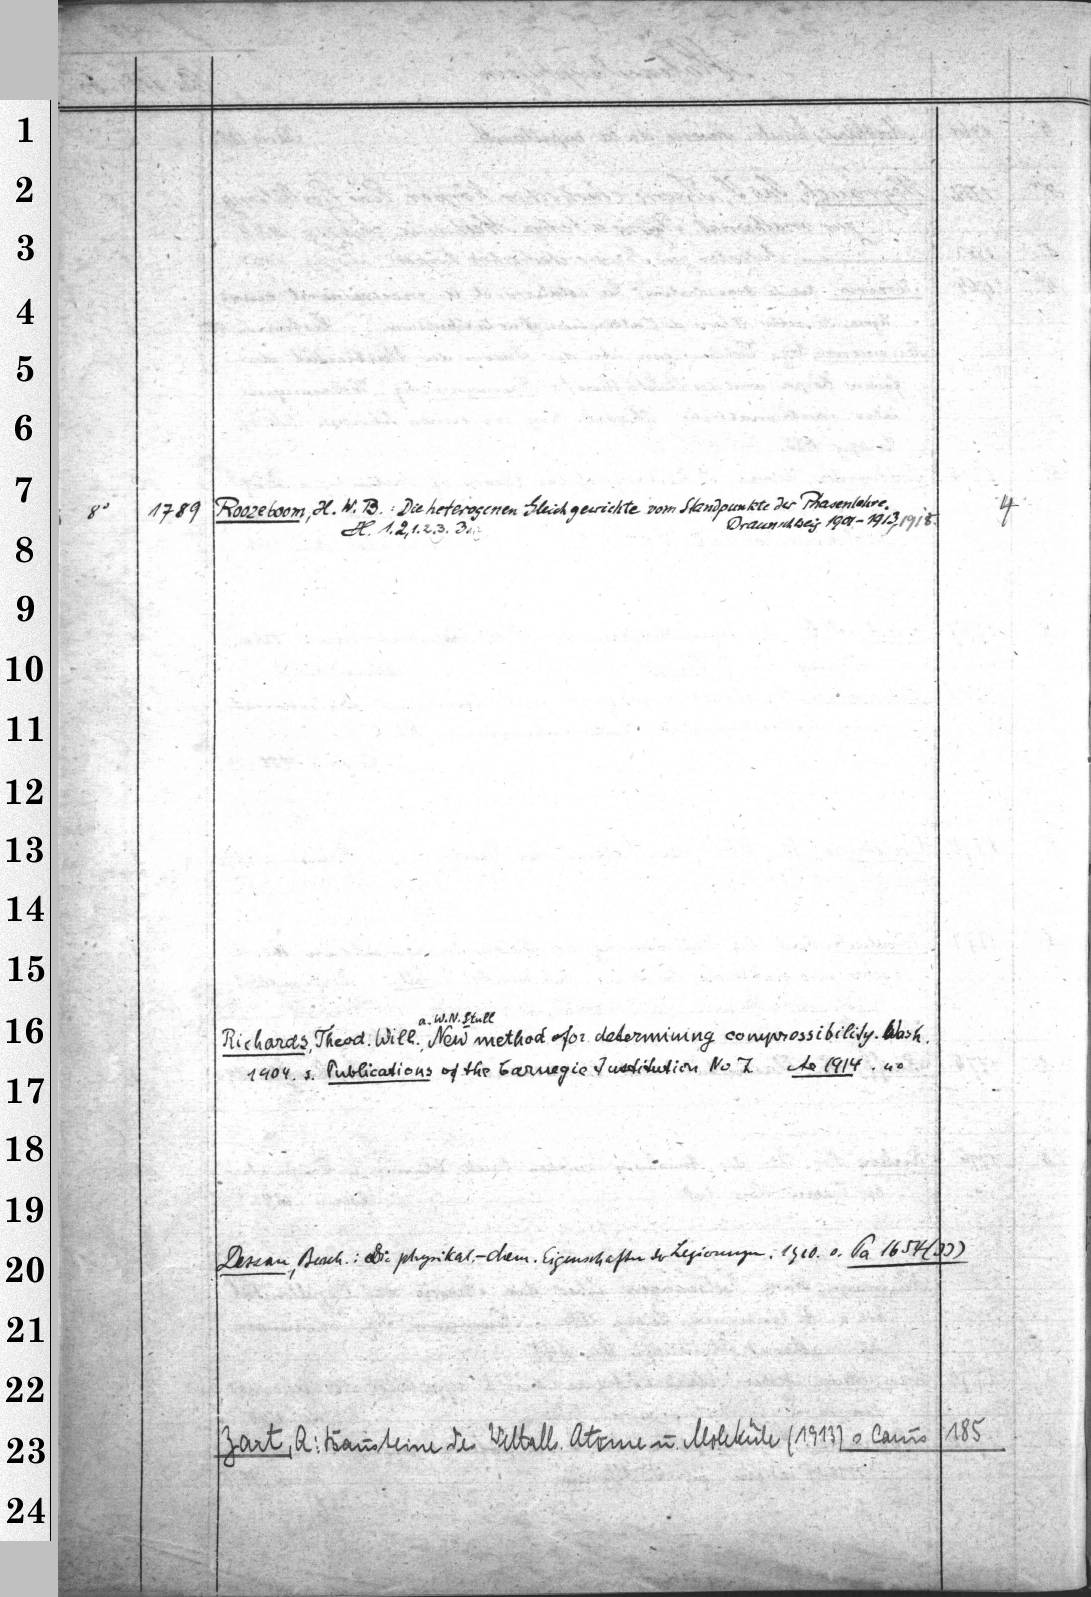 1
2
3
4
5
6
7
8
9
10
11
12
13
14
15
16
17
18
19
20
21
22
23
24
8° 1789 Roozeboom, H. W. B. : Die heterogenen Gleichgewichte vom Standpunkte der Phasenlehre. 4
H. 1.2,1.2.3. 3 Braunschweig 1901-1913,1918.
a. W.N. Stull
Richards, Theod. Will., New method of for determining compressibility. Wash.
1904. s. Publications of the Carnegie Institution No 7. Ae 1914. 4°
Dessau, Bern.: Die physikal.-chem. Eigenschaften der Legierungen. 1910. s. Pa 1654(33)
Zart, A: Bausteine des Weltalls. Atome u. Moleküle (1913) s Caus 185